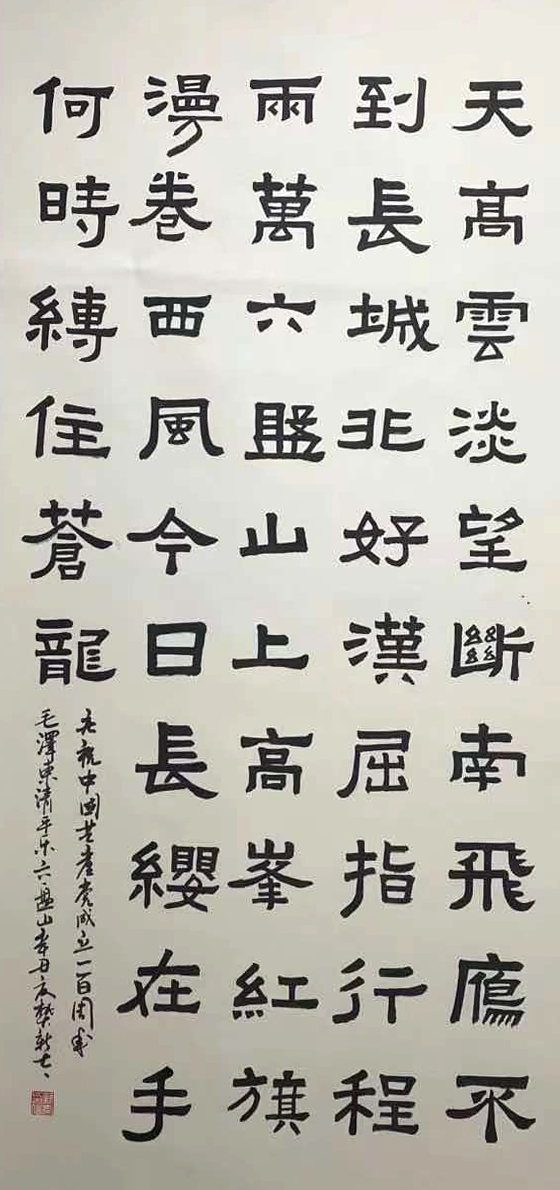 天髙雲淡望斷南飛鴈不
到長城非好漢屈指行程
兩萬六盤山上高峯紅旗
漫卷西風今日長纓在手
何時縛住蒼龍
庆祝中国共產党成立一百周年
毛澤東清平乐六盘山辛丑夏樊新